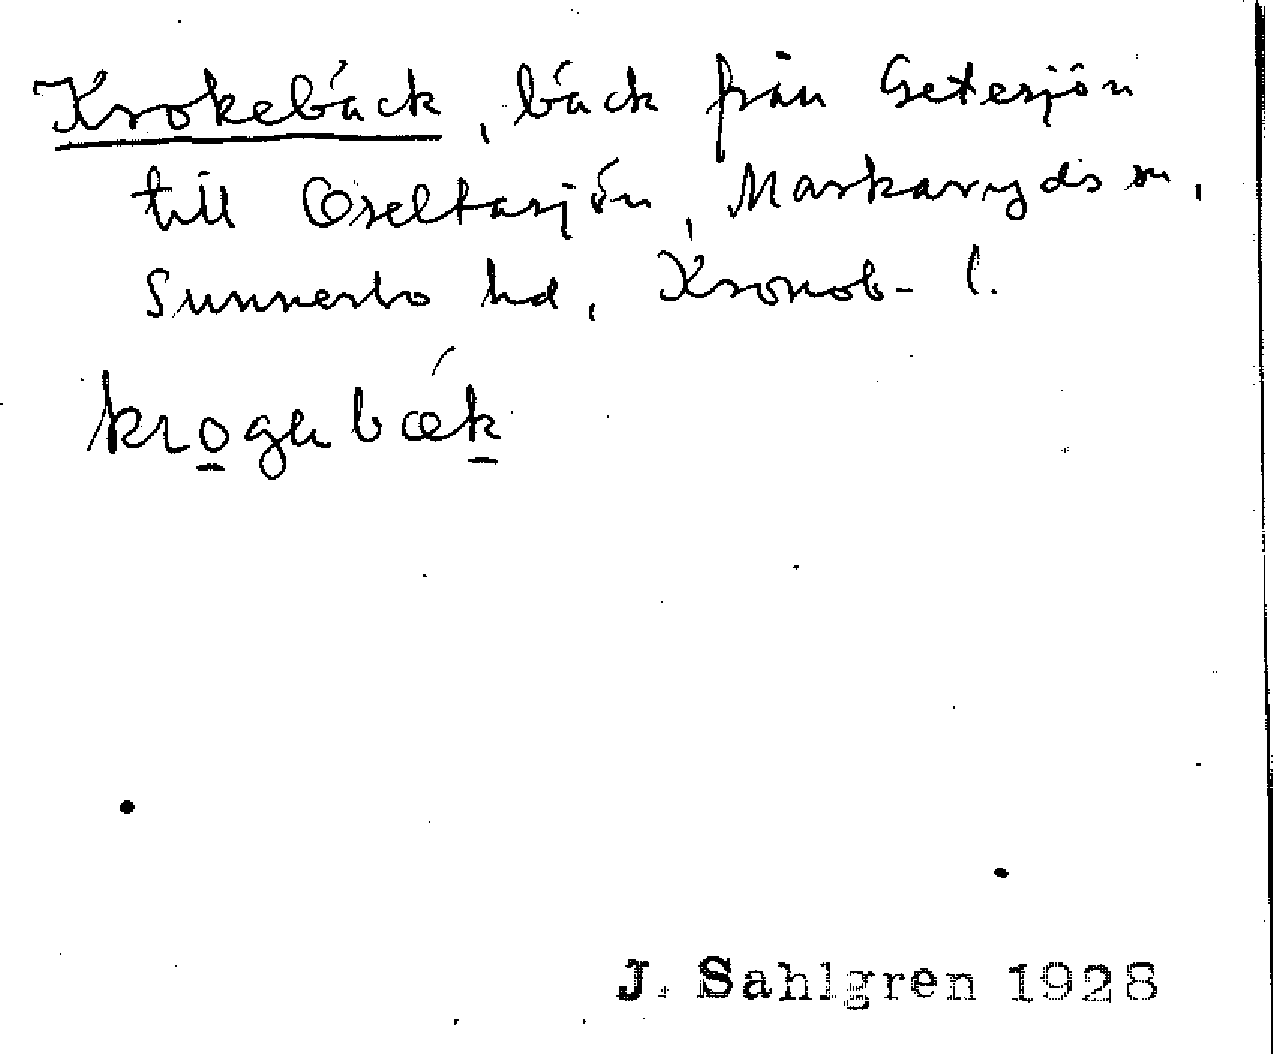 Krokebäck, bäck från Getesjön
till Oseltasjön, Markaryds sn,
Sunnerbo hd, Kronob. l.
krogebæk
J. Sahlgren 1928